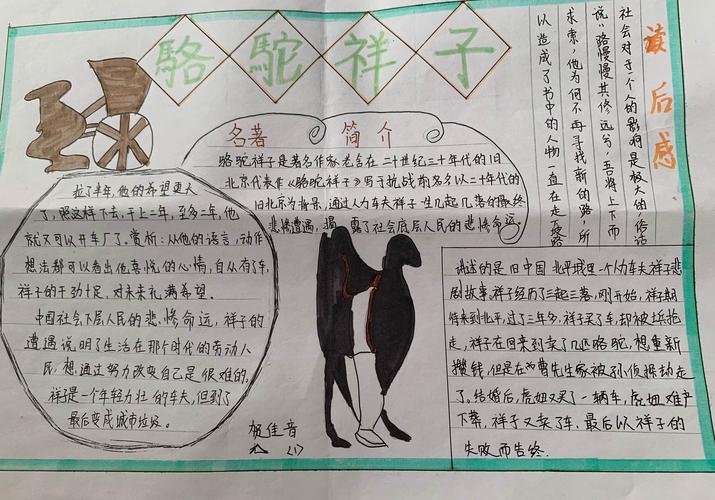 駱駝祥子
读后感
社会对于一个人的影响是极大的,俗话
说"路慢慢其修远兮,吾将上下而
求索,他为何不再寻找前的路,所
以造成了书中的人物一直在走
名著 简介
骆驼祥子是著名作家老舍在二十世纪三十年代的旧
北京代表作《骆驼祥子》写于抗战前
旧北京为背景,通过人力车夫祥子一生几起几落的最终
悲惨遭遇,揭露了社会底层人民的悲惨命运
拉了半年,他的希望更大
了,照这样下去,干上二年,至多二年,他
就又可以开车厂了。赏析:从他的语言,动作
想法都可以看出他喜悦的心情,自从有了车,
祥子的干劲十足,对未来充满希望。
中国社会下层人民的悲惨命运,祥子的
遭遇说明了生活在那个时代的劳动人
民,想通过努力改变自己是很难的,
祥子是一个年轻力壮的车夫,但到了
最后变成城市垃圾。
讲述的是旧中国北平城里一个人力车夫祥子悲
剧故事,祥子经历了三起三落,刚开始,祥子
来到北平,过了三年多,祥子买了车,却被兵抢
走,祥子在回来到卖了几匹骆驼,想重新
攒钱,但是在曹先生家被孙侦探劫走
了。结婚后,虎妞又买了一辆车,虎妞难产
下葬,祥子又卖了车,最后以祥子的
失败而告终.
贺佳音
九 (1)